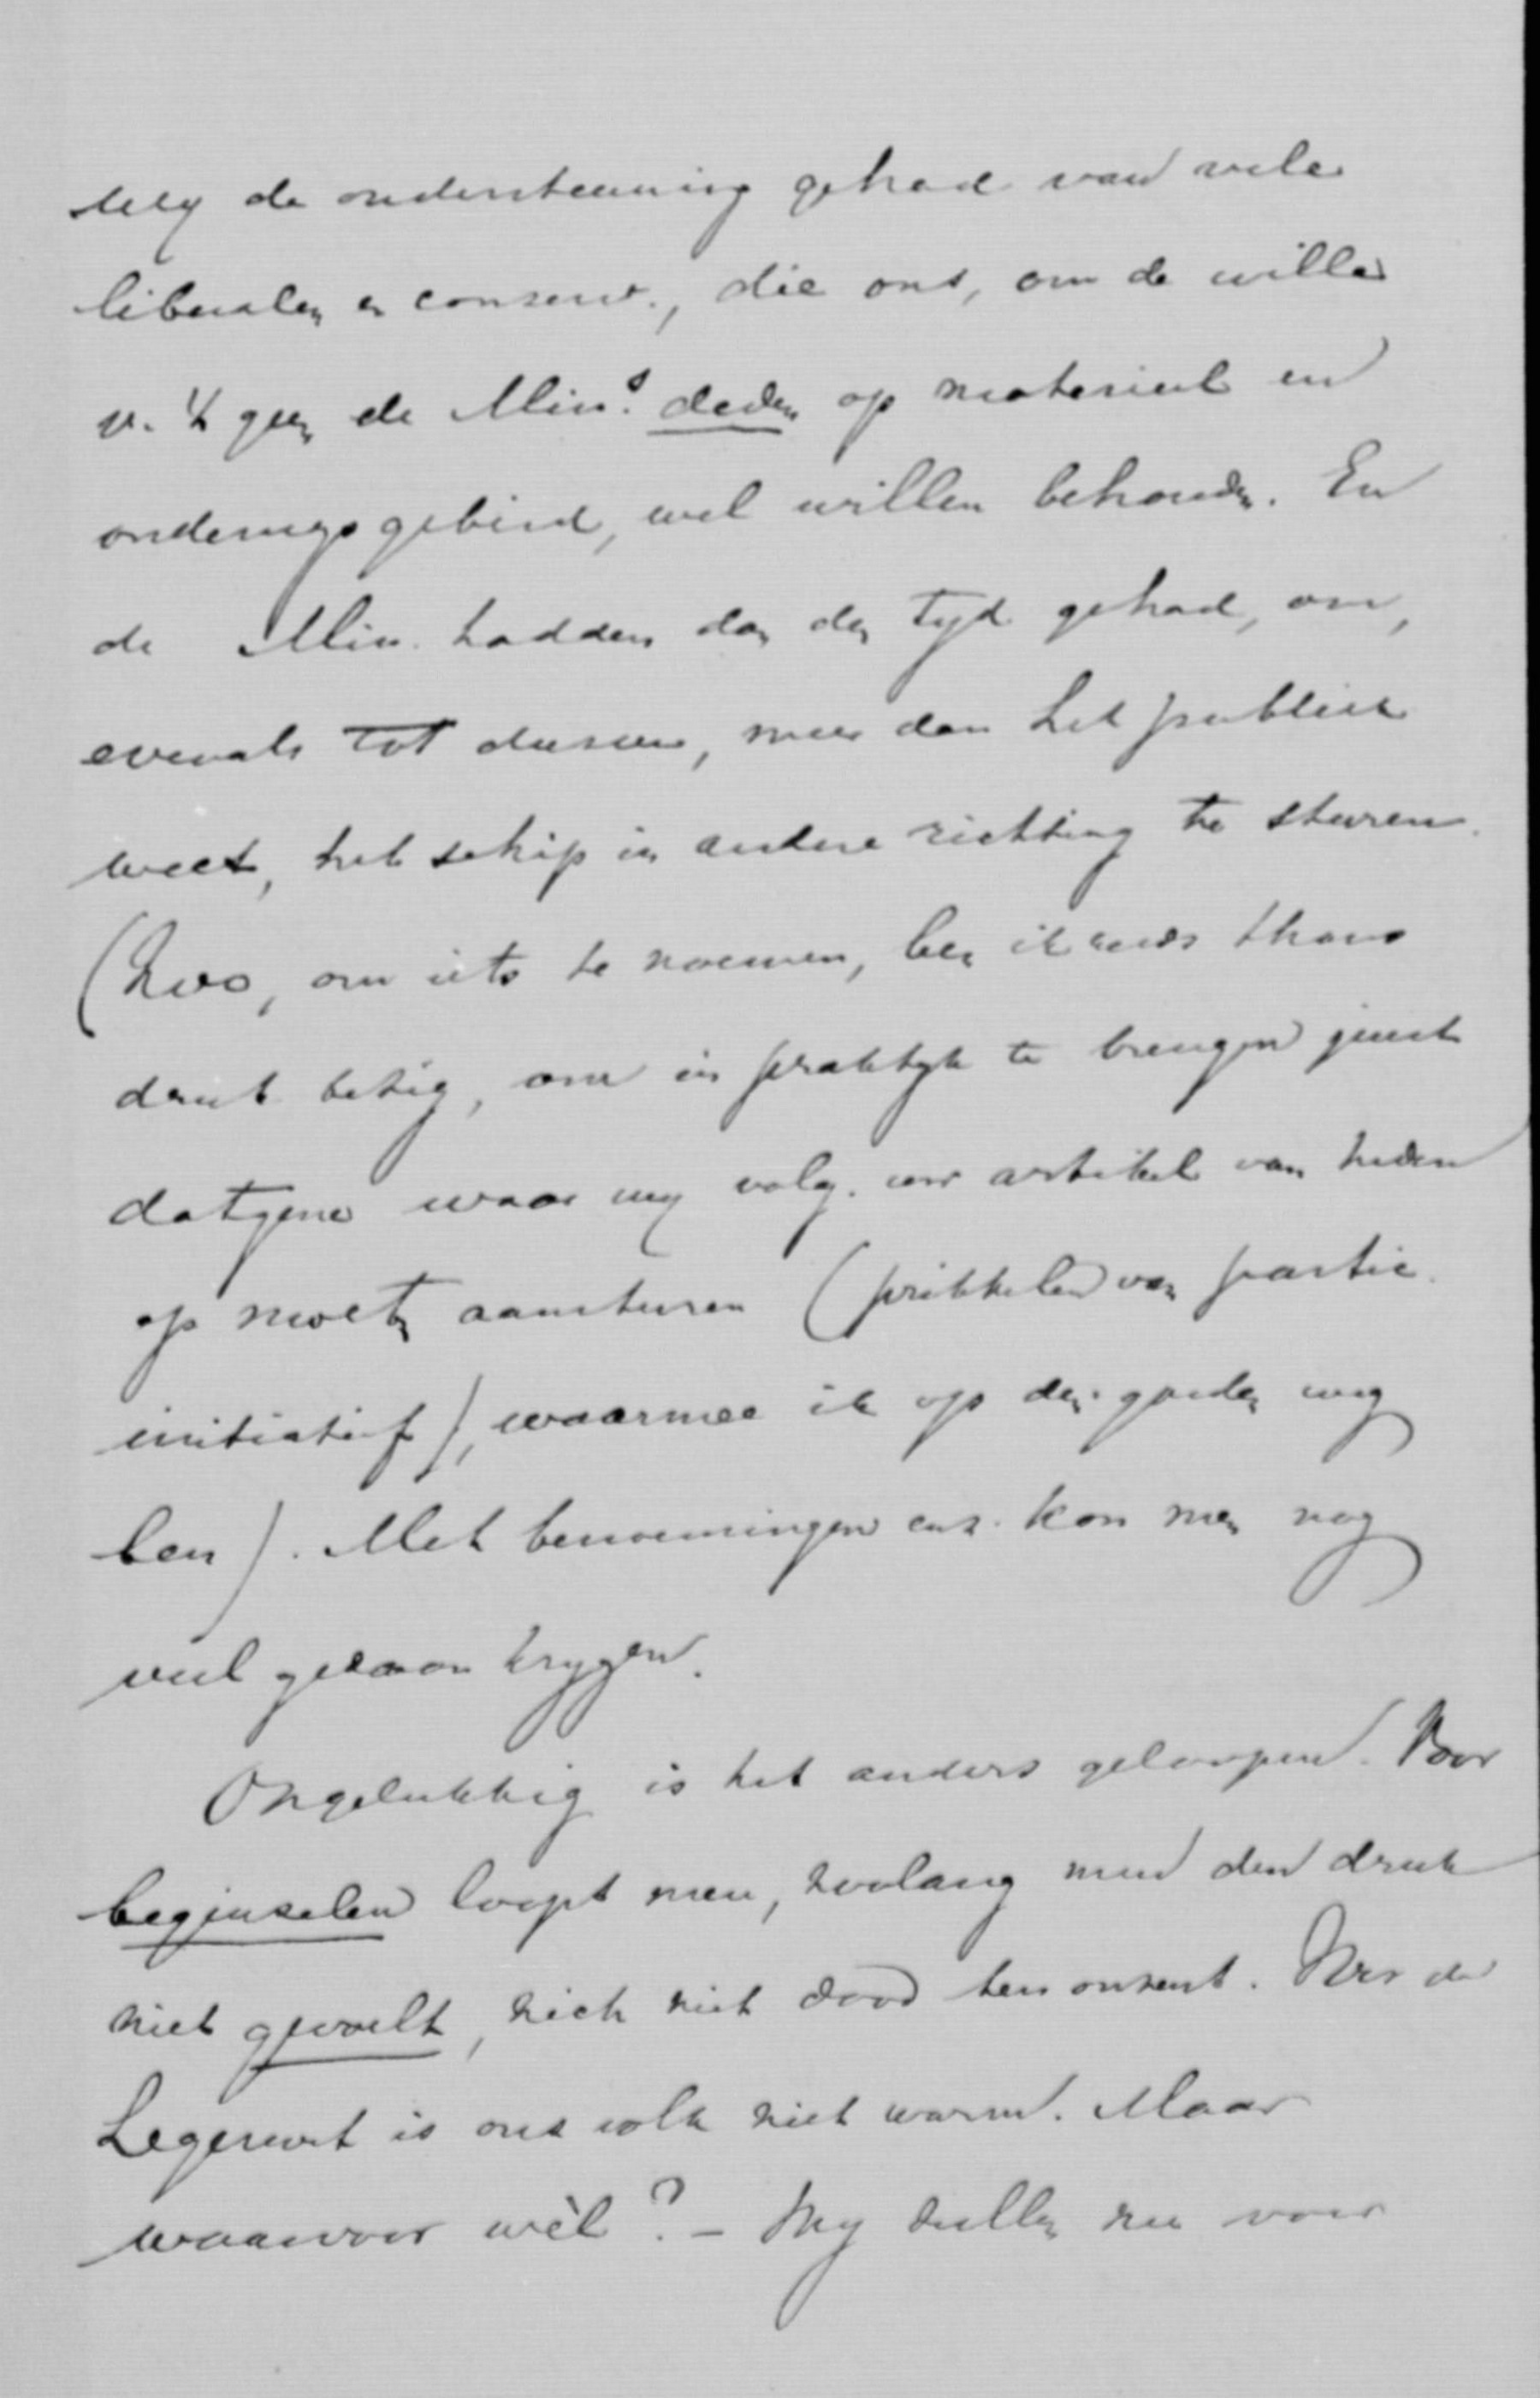 wy de ondersteuning gehad van vele
liberalen en conserv., die ons, om de wille
v. 't geen de Min.s deden op materieel en
onderwysgebied, wel willen behouden. En
de Min. hadden dan den tyd gehad, om,
evenals tot dusver, meer dan het publiek
weet, het schip in andere richting te sturen.
(Zoo, om iets te noemen, ben ik reeds thans
druk bezig, om in praktyk te brengen juist
datgene waar wy volg. uw artikel van heden
op moeten aansturen (prikkelen van partic.
initiatief), waarmee ik op den goeden weg
ben). Met benoemingen enz. kon men nog
veel gedaan krygen.
Ongelukkig is het anders geloopen. Voor
beginselen loopt men, zoolang men den druk
niet gevoelt, zich niet dood ten onzent. Voor de
Legerwet is ons volk niet warm. Maar
waarvoor wèl? - Wy zullen nu voor